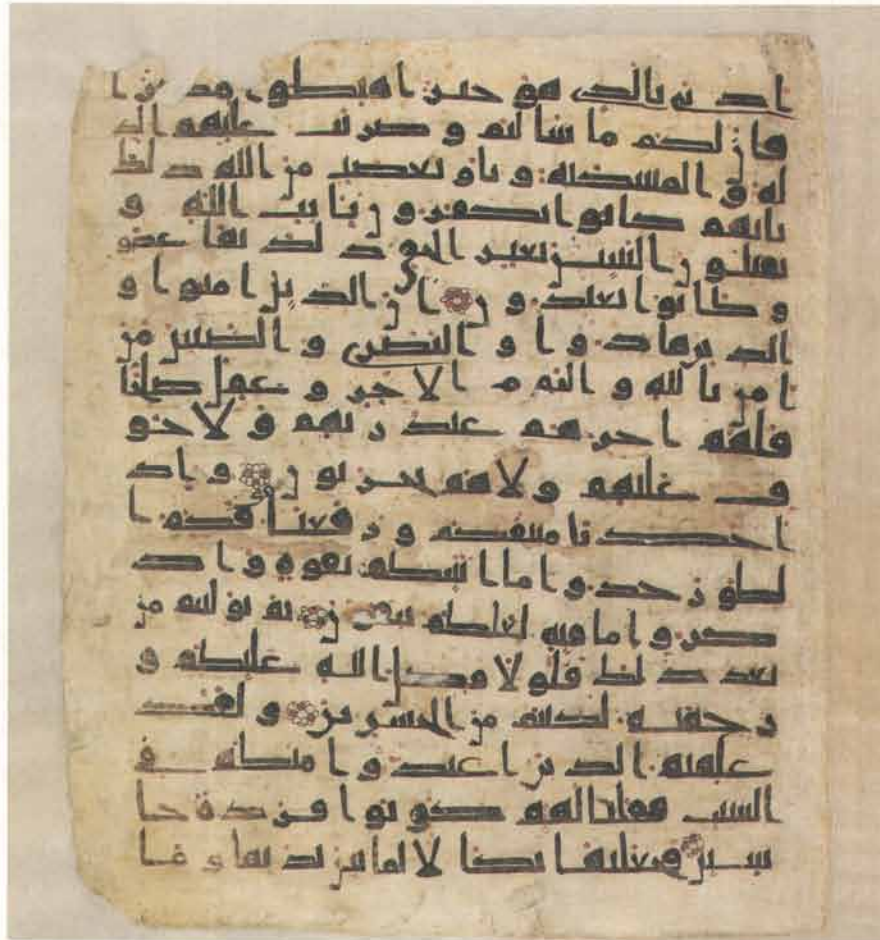 ادنى بالذى هو خير اهبطوا مصرا
فان لكم ما سالتم و ضربت عليهم الذ
لة و المسكنة و باو بغضب من الله ذلك
بانهم كانوا يكفرون بايت الله و
يقتلون النبين بغير الحق ذلك بما عصو
و كانوا يعتدون ان الذين امنوا و
الذين هادوا و النصرى و الصبين من
امن بالله و اليوم الاخر و عمل صلحا
فلهم اجرهم عند ربهم و لا خو
ف عليهم و لا هم يحزنون و اذ
اخذنا ميثقكم و رفعنا فوقكم ا
لطور خذوا ما اتينكم بقوة و اذ
كروا ما فيه لعلكم تتقون ثم توليتم من
بعد ذلك فلولا فضل الله عليكم و
رحمته لكنتم من الخسرين و لقد
علمتم الذين اعتدوا منكم فى
السبت فقلنا لهم كونوا قردة خا
سين فجعلنها نكلا لما بين يديها و ما